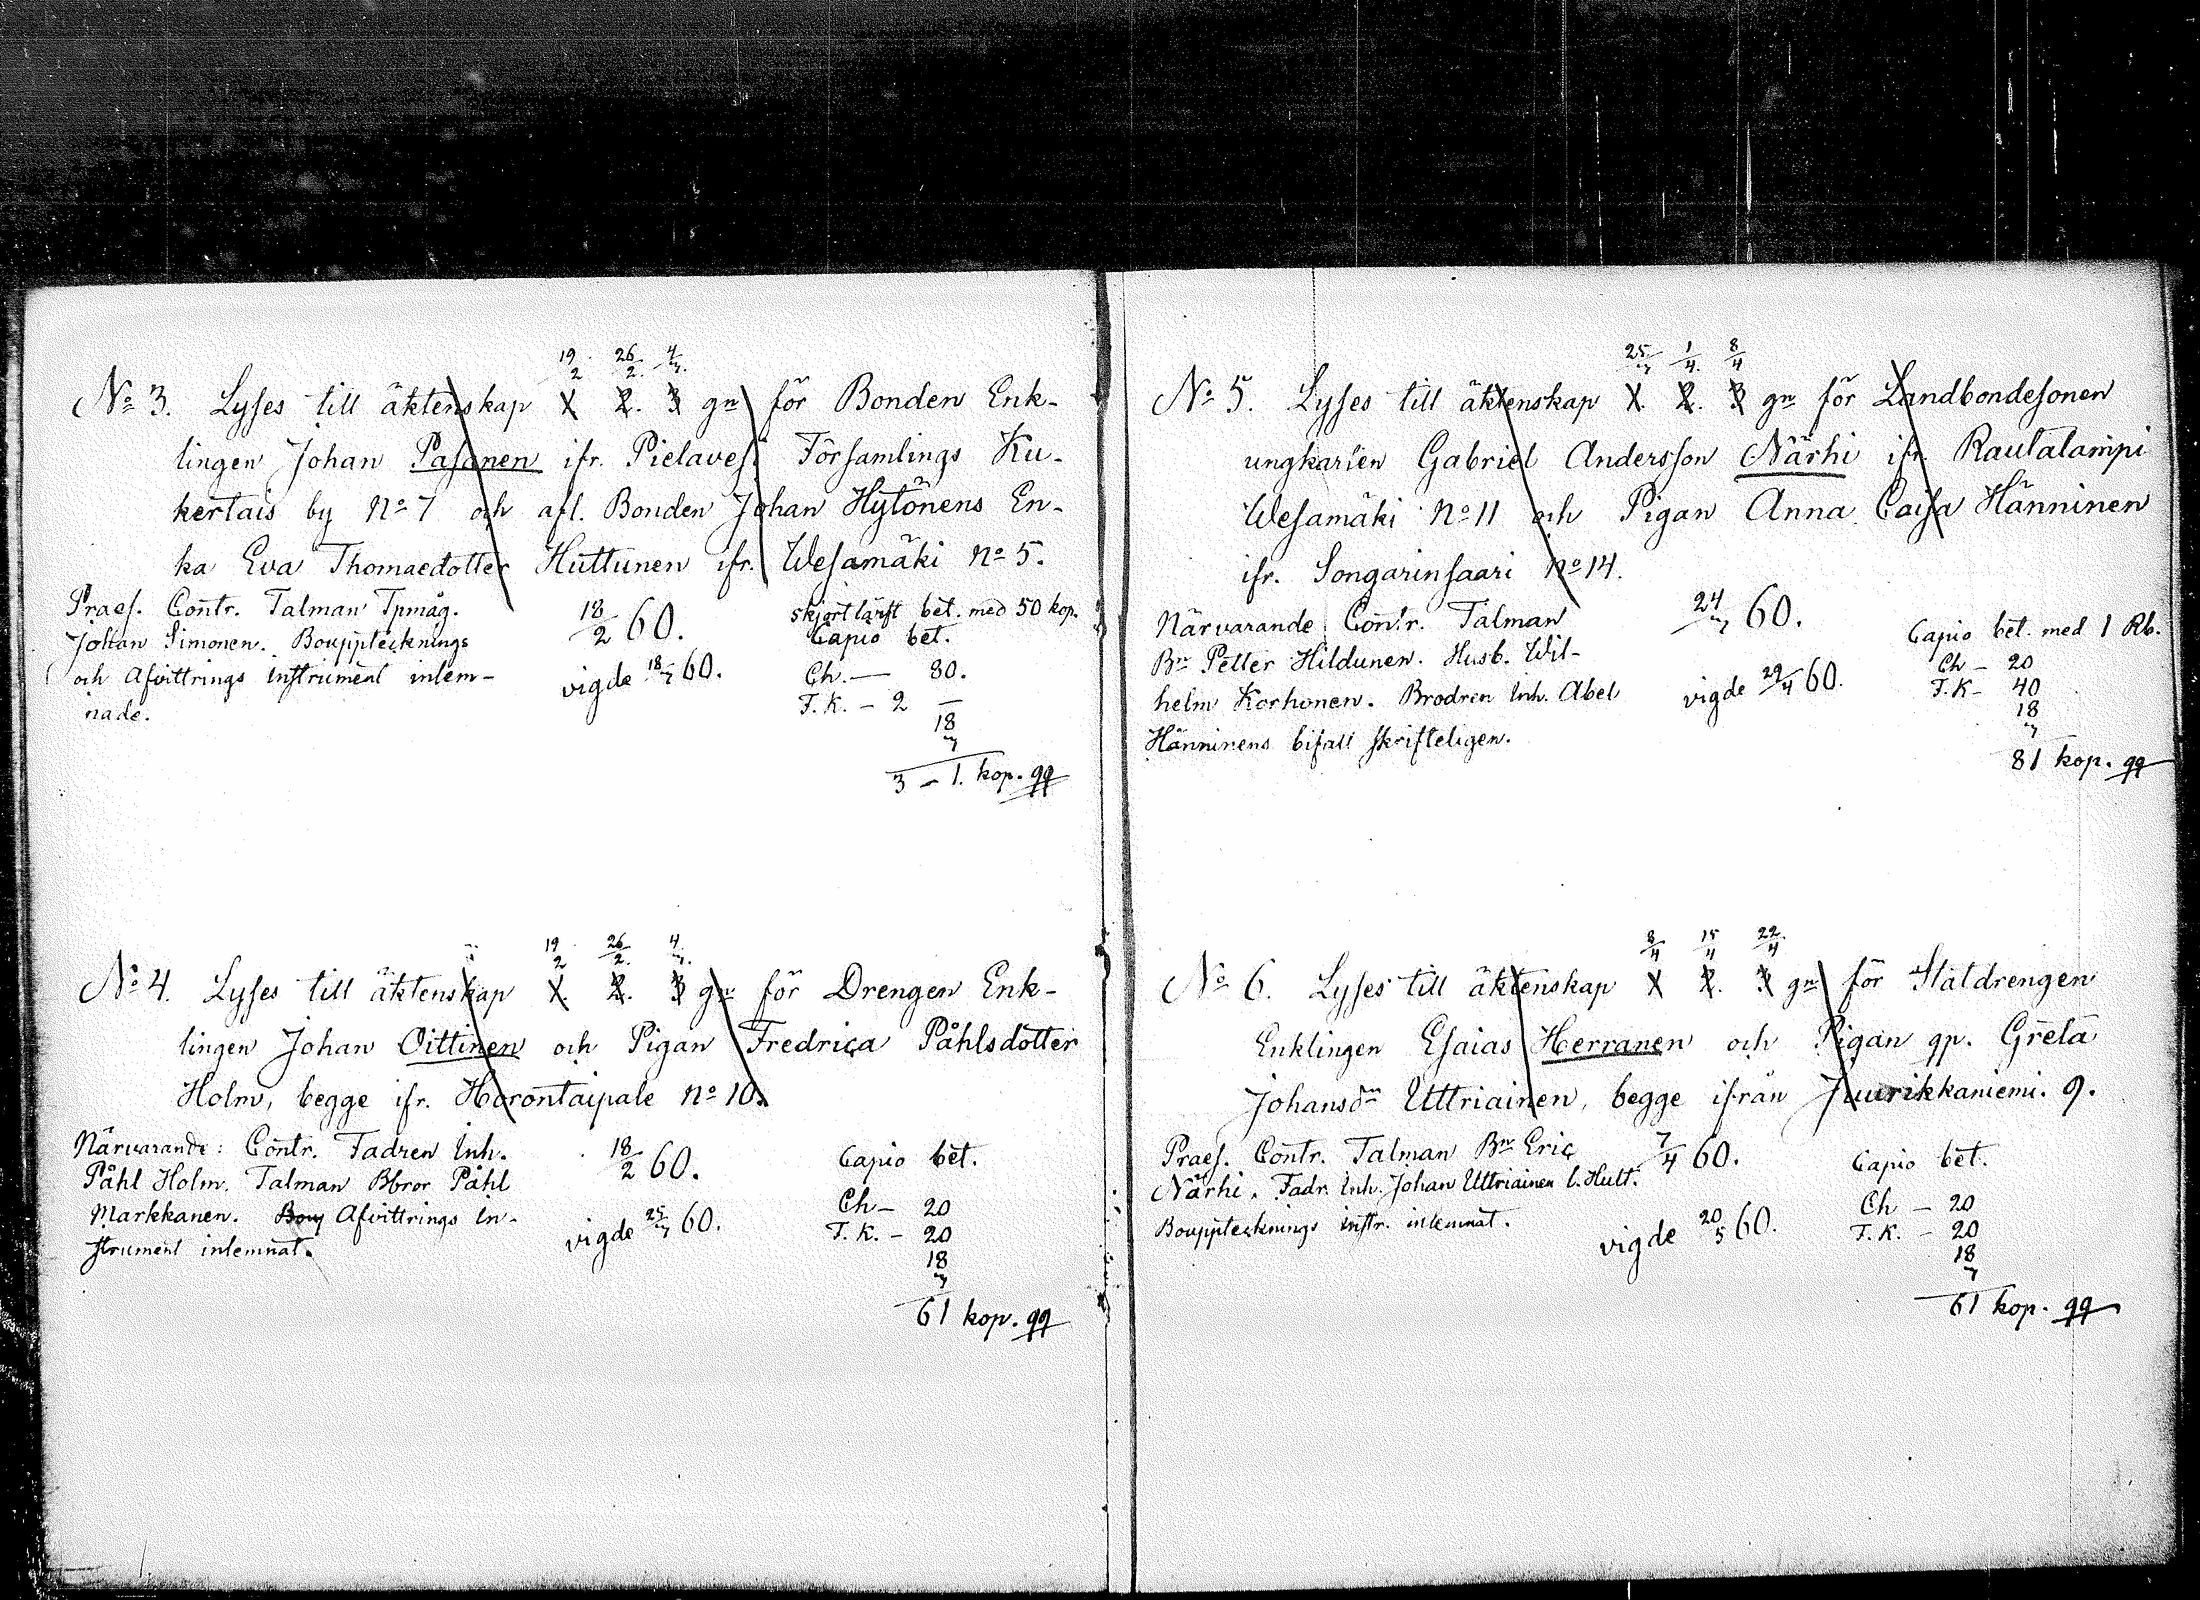 19/2 26/2. 4/3.
No 3. Lyses till äktenskap 1 2. 3 gn för Bonden Enk-
lingen Johan Pasanen ifr. Pielavesi Församlings Ku-
kertais by No 7 och afl. Bonden Johan Hytönens En-
ka Eva Thomaedotter Huttunen ifr. Wesamäki No 5.
Praes. Contr. Talman Tpmåg.
Johan Simonen. Bouppteknings
och Afvittrings instrument inlem-
nade.
18/2 60.
vigde 18/3 60.
skjortlärft bet. med 50 kop.
Capio bet.
Ch. — 80.
F. K. – 2 —
18
3
3 – 1. kop. qq
19/2 26/2. 4/3.
No 4. Lyses till äktenskap 1. 2. 3 gn för Drengen Enk-
lingen Johan Oittinen och Pigan Fredrica Påhlsdotter
Holm, begge ifr. Horontaipale No 10.
Närvarande: Contr. Fadren Inh.
Påhl Holm. Talman Bbror Påhl
Markkanen. Bouy Afvittrings in-
strument inlemnat.
18/2 60.
vigde 25/3 60.
Capio bet.
Ch – 20
F. K. – 20
18
3
61 kop. qq
25/3 1/4. 8/4
No 5. Lyses till äktenskap 1. 2. 3 gn för Landbondesonen
ungkarlen Gabriel Andersson Närhi ifr. Rautalampi
Wesamäki No 11 och Pigan Anna Caisa Hänninen
ifr. Songarinsaari No 14.
Närvarande: Contr. Talman
Bn Petter Hildunen. Husb. Wil-
helm Korhonen. Brodren Inh. Abel
Hänninens bifall skrifteligen.
24/3 60.
vigde 29/4 60.
Capio bet. med 1 Rb.
Ch – 20
F. K – 40
18
3
81 kop. qq
8/4 15/4 22/4
No 6. Lyses till äktenskap 1 2. 3 gn för Statdrengen
Enklingen Esaias Herranen och Pigan qp. Greta
Johansdr Uttriainen, begge ifrån Juurikkaniemi. 9.
Praes. Contr. Talman Bn Eric
Närhi. Fadr. Inh. Johan Uttriainen l. Hutt.
Bouppteknings instr. inlemnat.
7/4 60.
vigde 20/5 60.
Capio bet.
Ch – 20
F. K. – 20
18
3
61 kop. qq